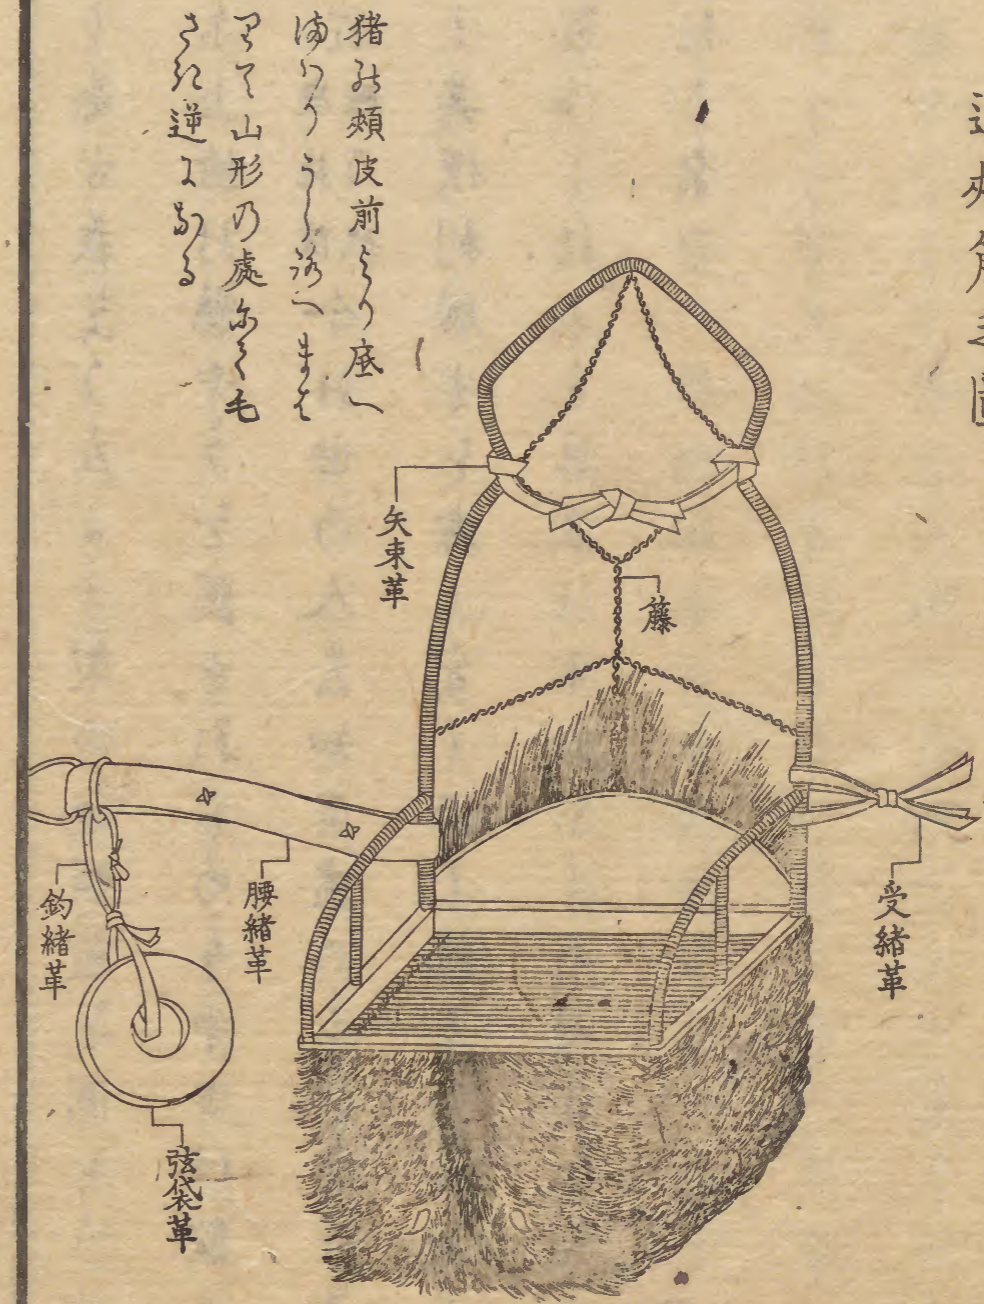 猪の頬皮前より底へ
まハりうしろへまは
りて山形の處にて毛
さき逆になる
矢束革
藤
受緒革
腰緒革
釣緒革
弦袋革